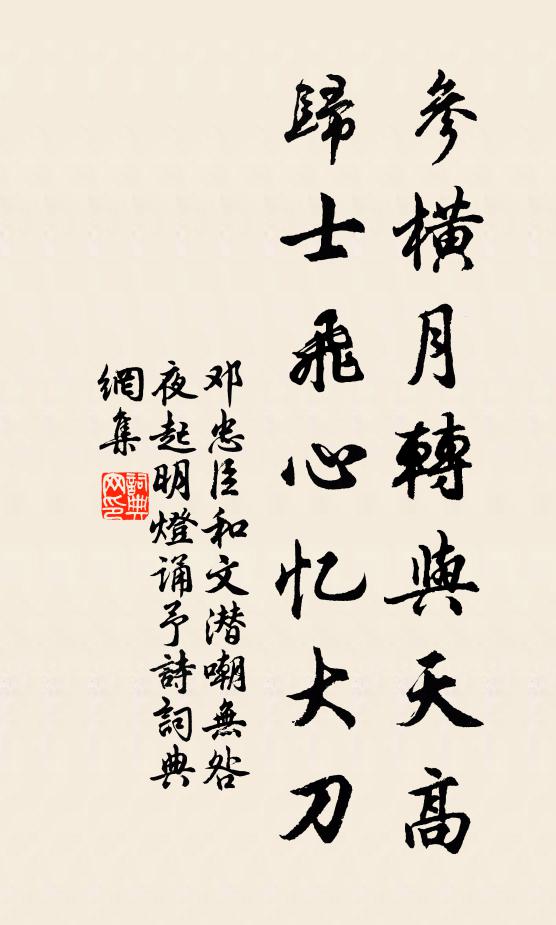 參橫月轉與天高
歸士飛心忆大刀
邓忠臣和文潜嘲無咎
夜起明燈诵予詩詞典
網集
詞典
网印